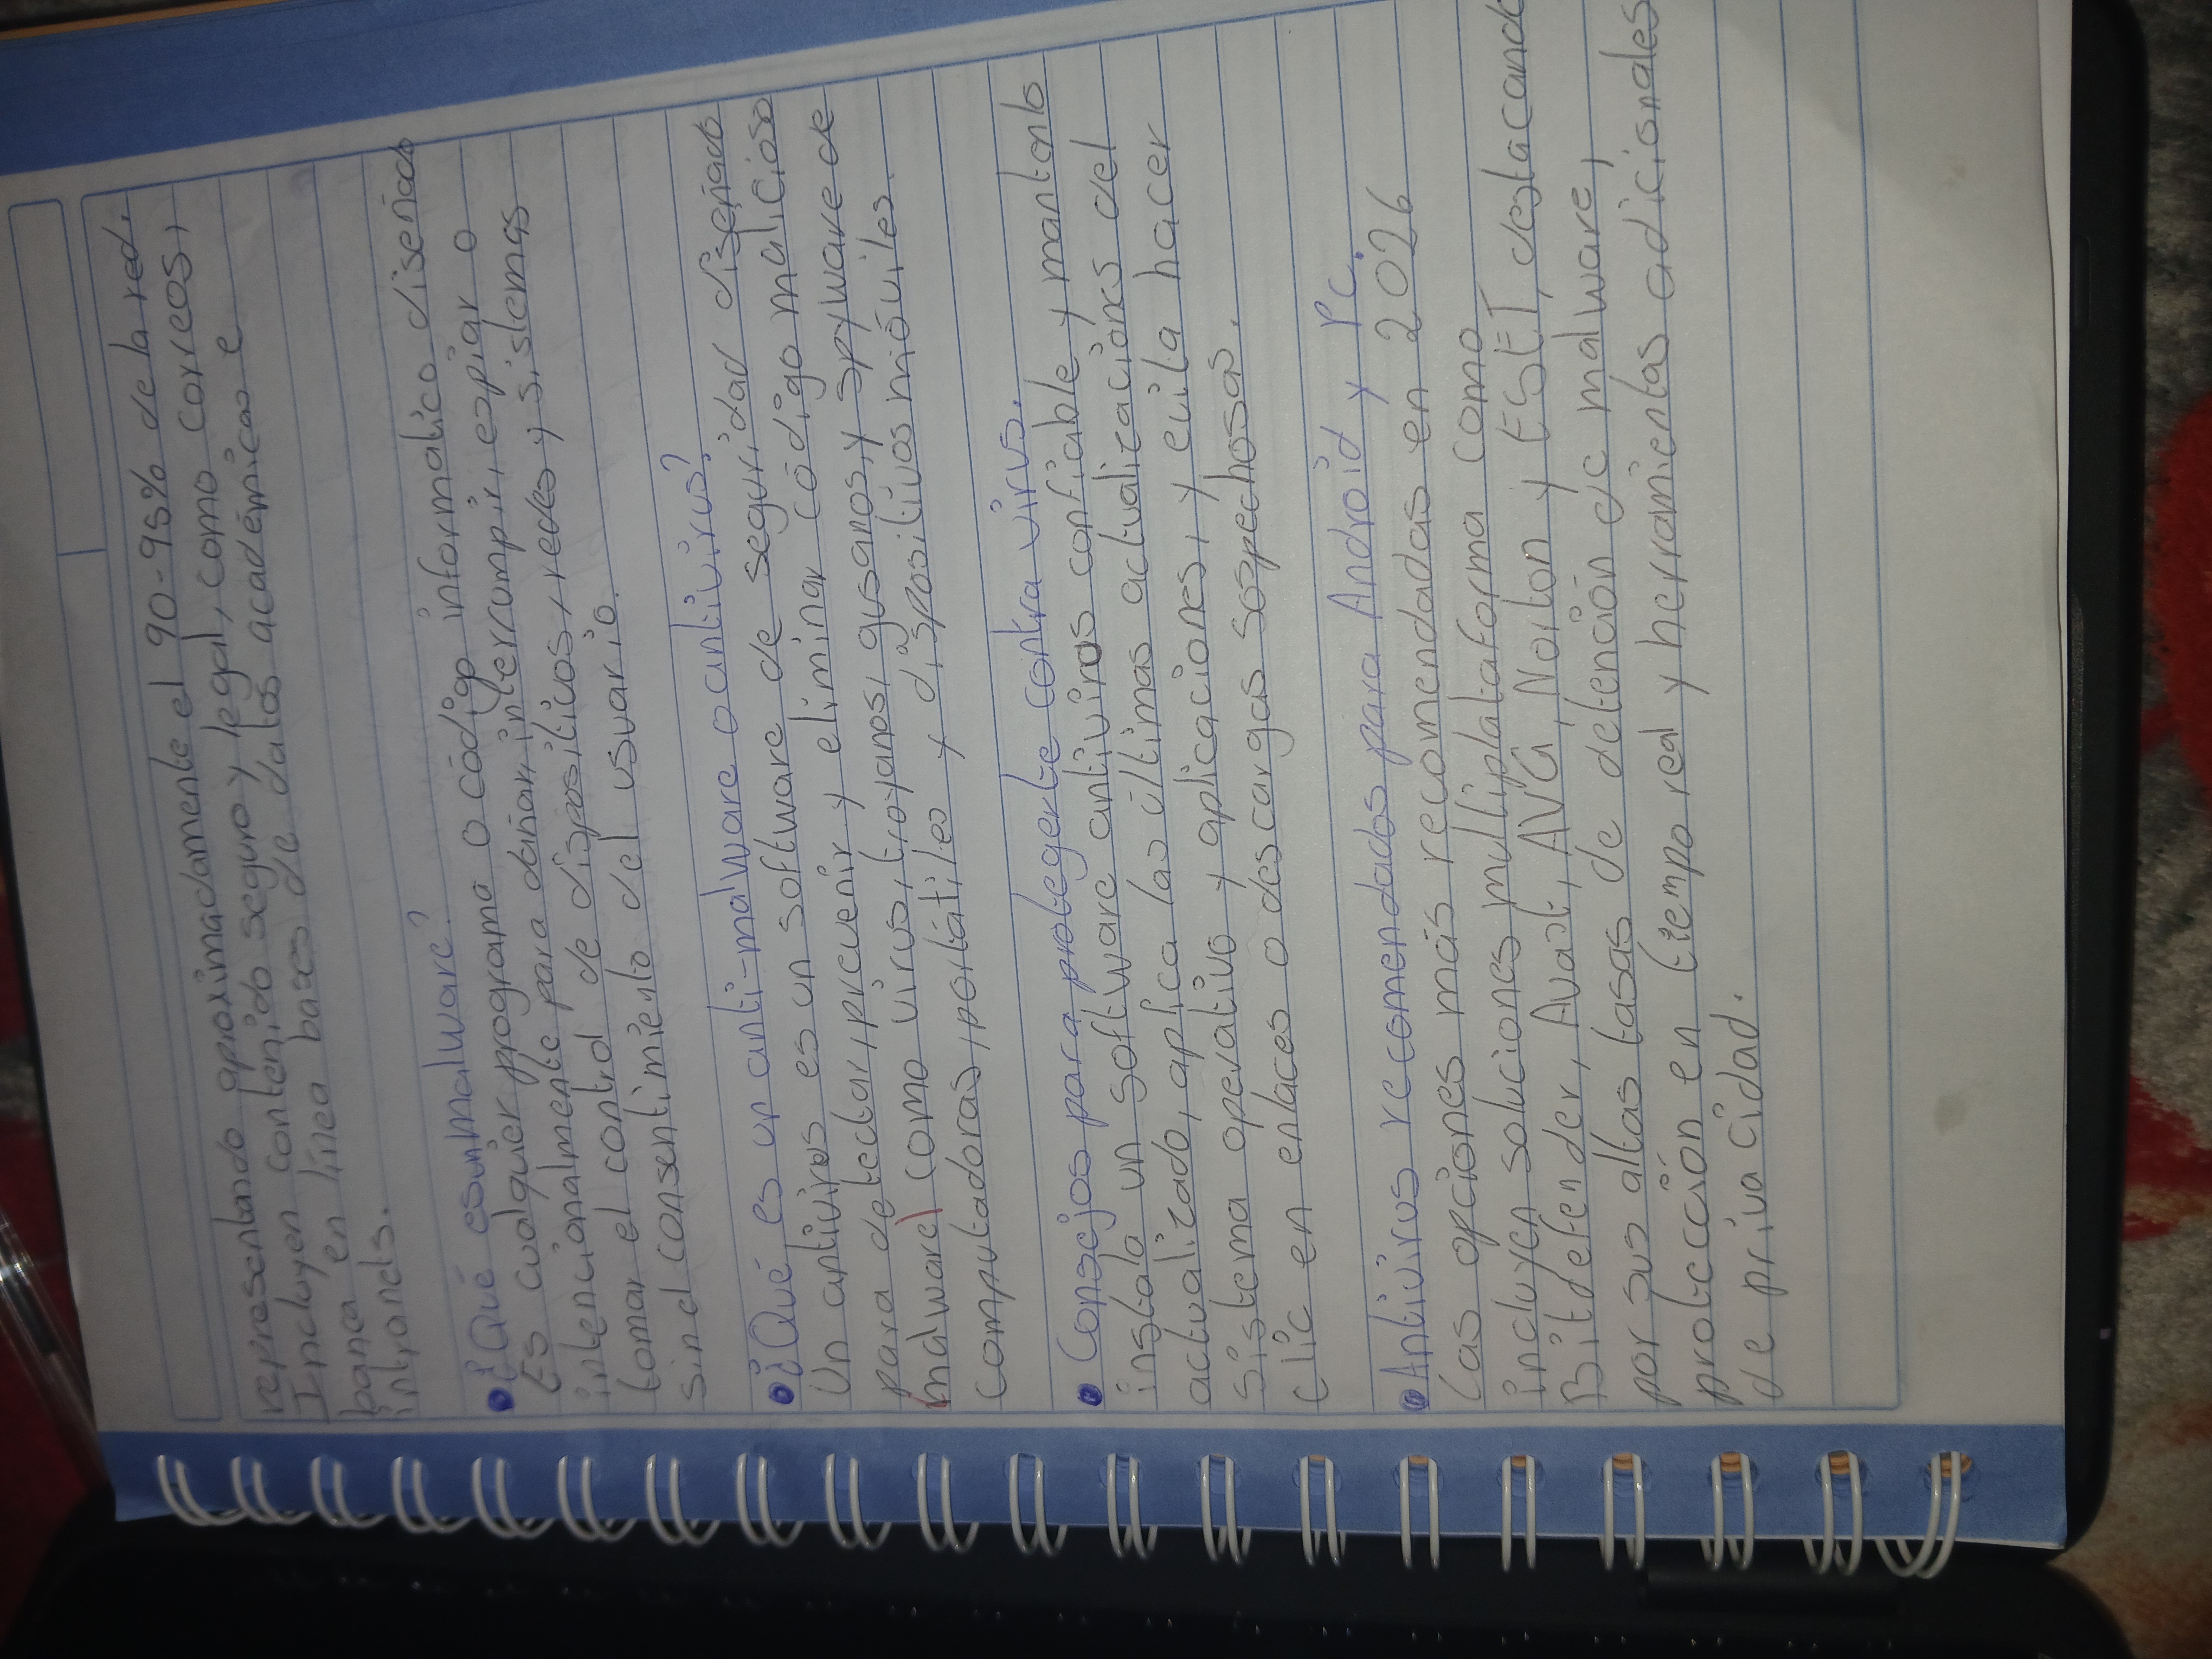 representando aproximadamente el 90-95% de la red.
Incluyen contenido seguro y legal, como correos,
banca en línea bases de datos académicas e
intranets.
¿Qué es un malware?
Es cualquier programa o código informatico diseñado
intencionalmente para dañar, interrumpir, espiar o
tomar el control de dispositivos, redes y sistemas
sin el consentimiento del usuario.
¿Qué es un anti-malware o antivirus?
Un antivirus es un software de seguridad diseñado
para detectar, prevenir y eliminar código malicioso
(malware) como virus, troyanos, gusanos, y spyware de
computadoras, portátiles y dispositivos móviles.
Consejos para protegerte contra virus.
instala un software antivirus confiable y mantenlo
actualizado, aplica las últimas actualizaciones del
sistema operativo y aplicaciones, y evita hacer
clic en enlaces o descargas sospechosas.
Antivirus recomendados para Android y Pc.
Las opciones más recomendadas en 2026
incluyen soluciones multiplataforma como
Bitdefender, Avast, AVG, Norton y ESET, destacando
por sus altas tasas de detención de malware,
protección en tiempo real y herramientas adicionales
de privacidad.